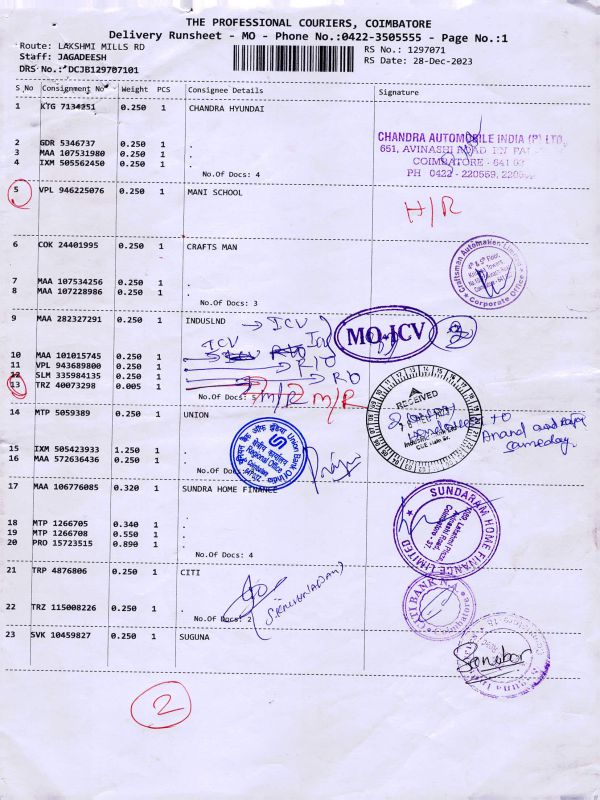 THE PROFESSIONAL COURIERS, COIMBATORE
Delivery Runsheet - MO - Phone No.:0422-3505555 - Page No.:1
Route: LAKSHMI MILLS RD
RS No.: 1297071
Staff: JAGADEESH
RS Date: 28-Dec-2023
DRS No.: DCJB129707101
S No Consignment No Weight PCS Consignee Details Signature
1 KTG 7134251 0.250 1 CHANDRA HYUNDAI
2 GDR 5346737 0.250 1 .
3 MAA 107531980 0.250 1 .
4 IXM 505562450 0.250 1 .
No.Of Docs: 4
CHANDRA AUTOMOBILE INDIA (P) LTD.
651, AVINASHI ROAD
COIMBATORE - 641
PH 0422 - 220569,
5 VPL 946225076 0.250 1 MANI SCHOOL
H/R
6 COK 24401995 0.250 1 CRAFTS MAN
7 MAA 107534256 0.250 1 .
8 MAA 107228986 0.250 1 .
No.Of Docs: 3
Craftsman Automation Limited
Corporate Office
9 MAA 282327291 0.250 1 INDUSLND
ICV
ICV
MO-ICV
2
10 MAA 101015745 0.250 1
11 VPL 943689800 0.250 1
12 SLM 335984135 0.250 1
13 TRZ 40073298 0.005 1
No.Of Docs: 5
M/R 2 M/R
RECEIVED
to
Anand
Sameday.
14 MTP 5059389 0.250 1 UNION
15 IXM 505423933 1.250 1 .
16 MAA 572636436 0.250 1 .
No.Of Docs:
Union Bank Of India
Regional Office
Coimbatore
17 MAA 106776085 0.320 1 SUNDRA HOME FINANCE
18 MTP 1266705 0.340 1 .
19 MTP 1266708 0.550 1 .
20 PRO 15723515 0.890 1 .
No.Of Docs: 4
SUNDARAM HOME FINANCE LIMITED
Avinashi Road,
Coimbatore - 37.
21 TRP 4876806 0.250 1 CITI
22 TRZ 115008226 0.250 1 .
No.Of Docs: 2
CITI BANK N.A.
Coimbatore
23 SVK 10459827 0.250 1 SUGUNA
2